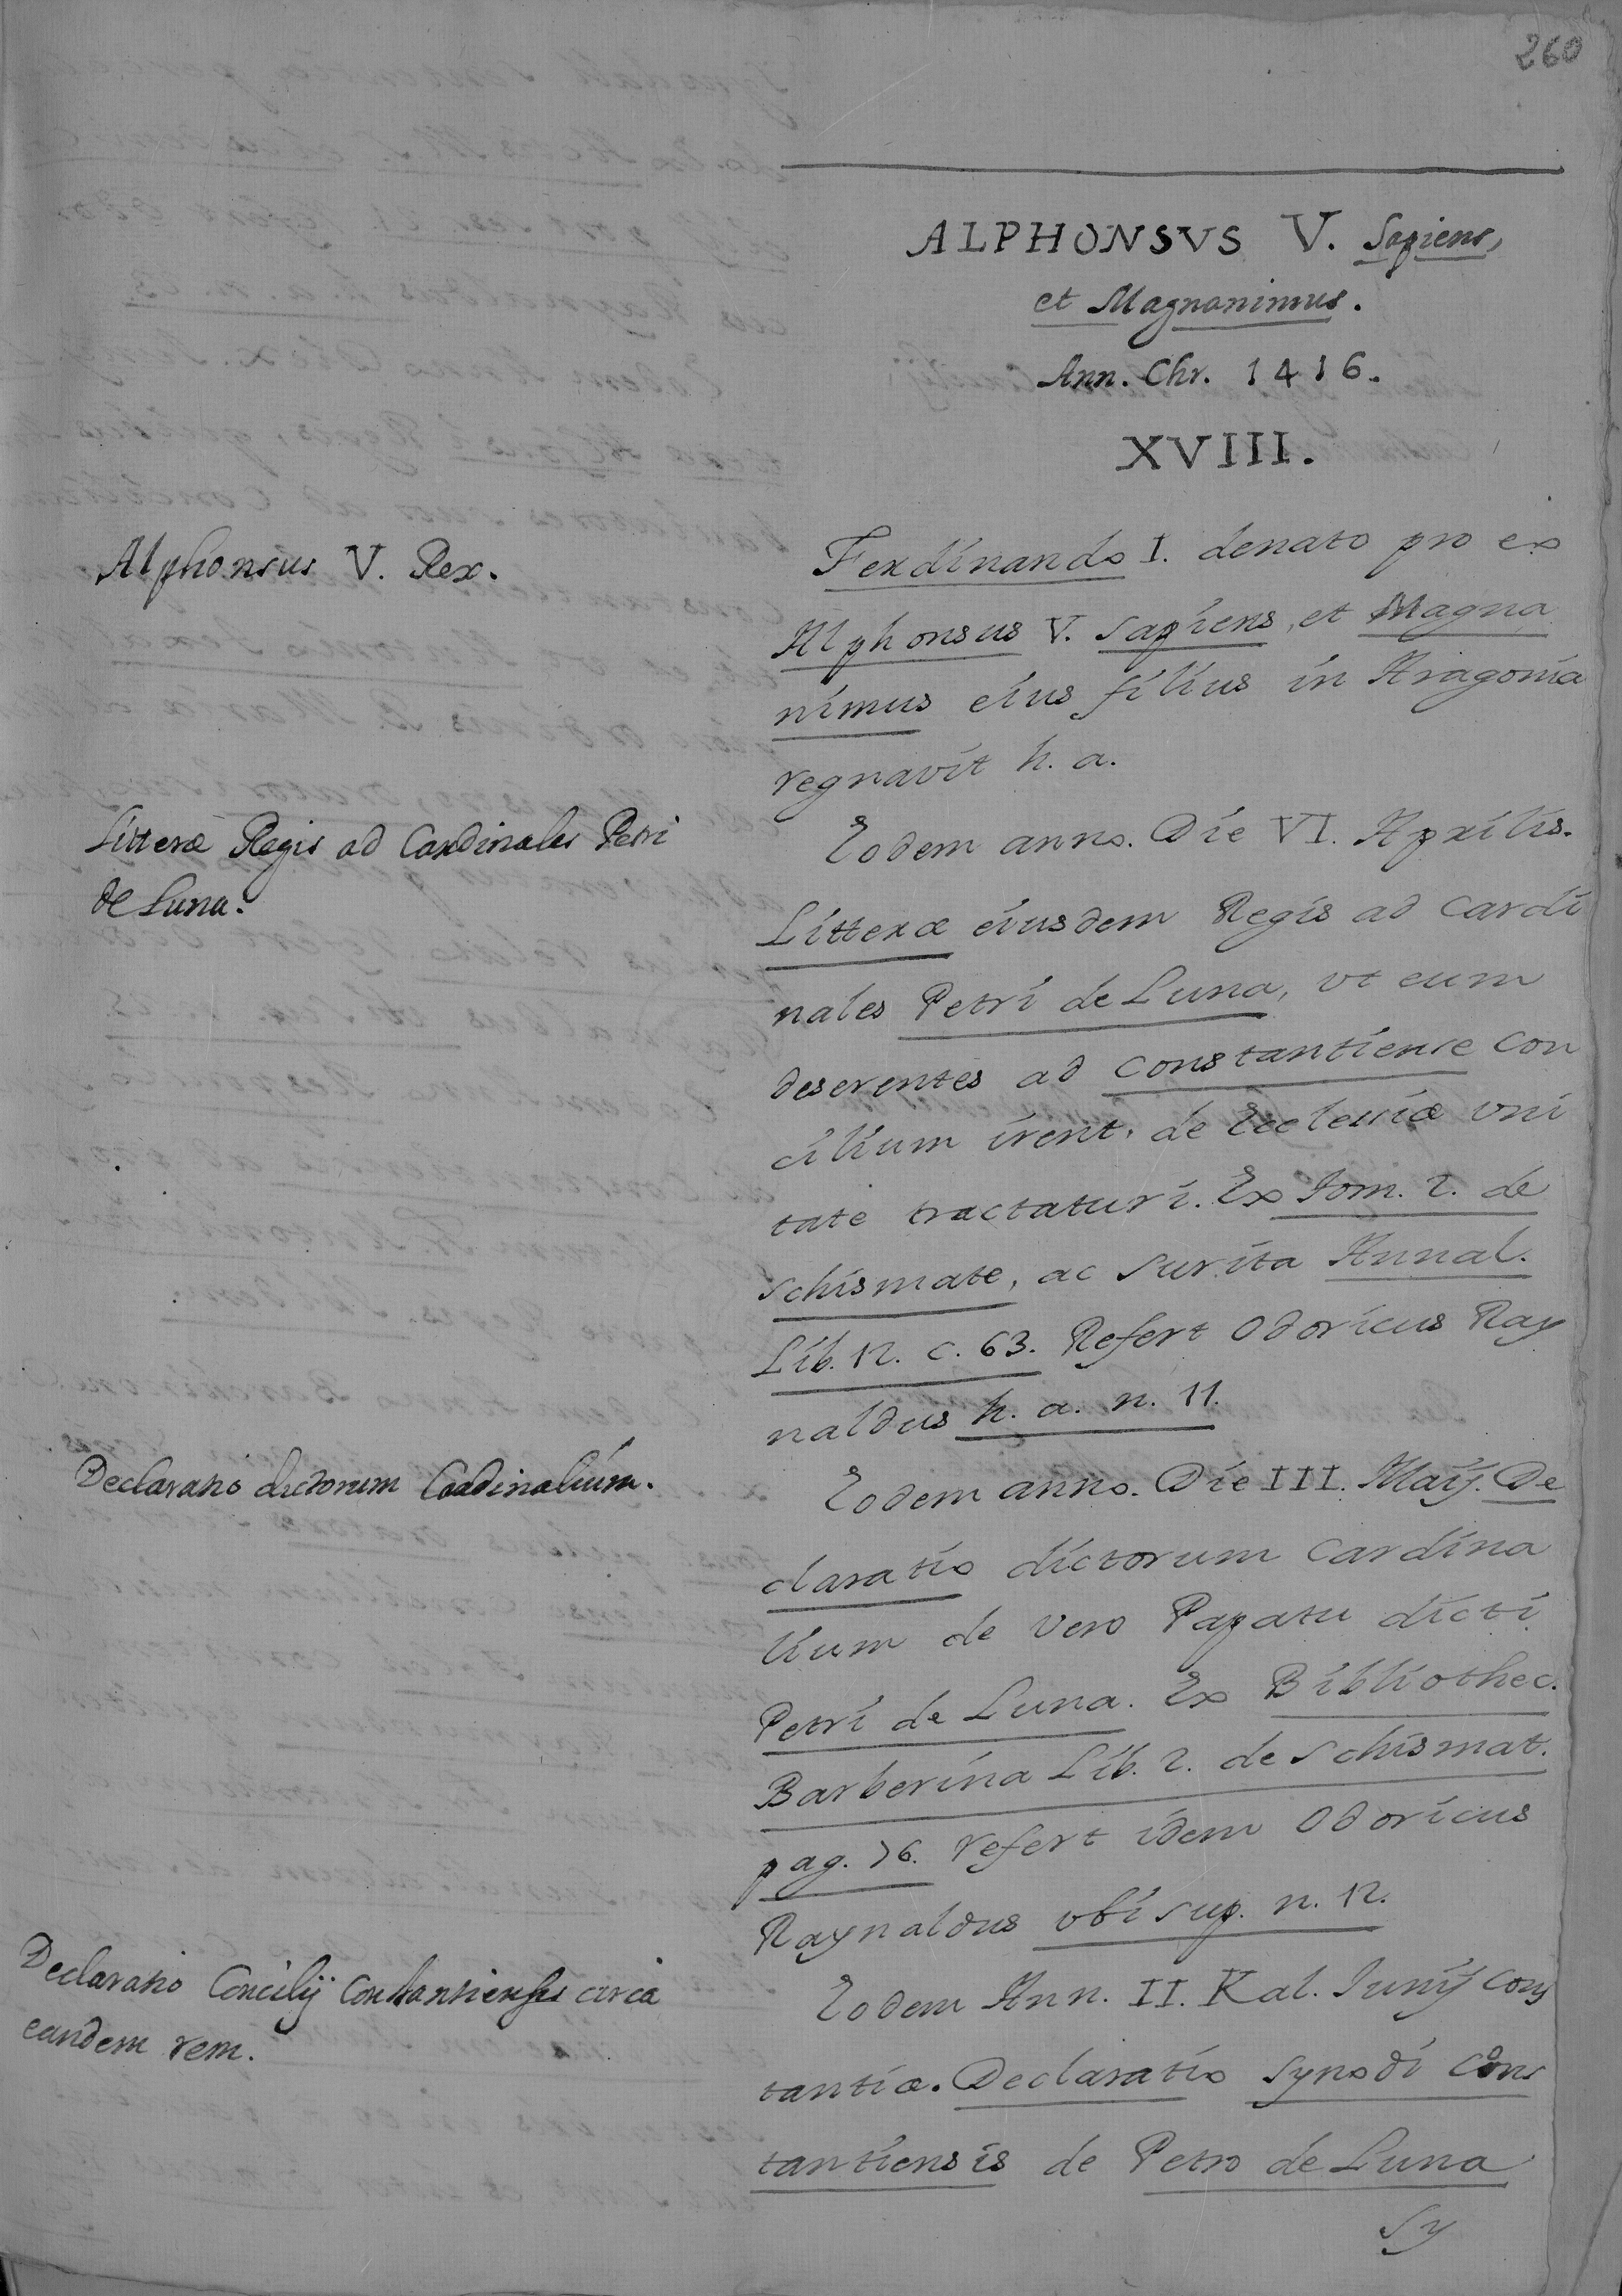 260
ALPHONSVS V. Sapiens,
et Magnanimus.
Ann. Chr. 1416.
XVIII.
Alphonsus V. Rex.
Ferdinando I. denato pro ex
Alphonsus V. Sapiens, et Magna
nimus eius filius in Aragonia
regnavit h. a.
Litteræ Regis ad Cardinales Petri
de Luna.
Eodem anno. Die VI. Aprilis.
Litteræ eiusdem Regis ad Cardi
nales Petri de Luna, vt eum
deserentes ad Constantiense Con
cilium irent, de Ecclesiæ vni
tate tractaturi. Ex Tom. 2. de
schismate, ac Surita Annal.
Lib. 12. c. 63. Refert Odoricus Ray
naldus h. a. n. 11.
Declaratio dictorum Cardinalium.
Eodem anno. Die III. Maij. De
claratio dictorum Cardina
lium de vero Papatu dicti
Petri de Luna. Ex Bibliothec.
Barberina Lib. 2. de Schismat.
pag. 76. refert idem Odoricus
Raynaldus vbi sup. n. 12.
Declaratio Concilij Constantiensis circa
eandem rem.
Eodem Ann. II. Kal. Iunij Cons
tantiæ. Declaratio Synodi Cons
tantiensis de Petro de Luna
Sy